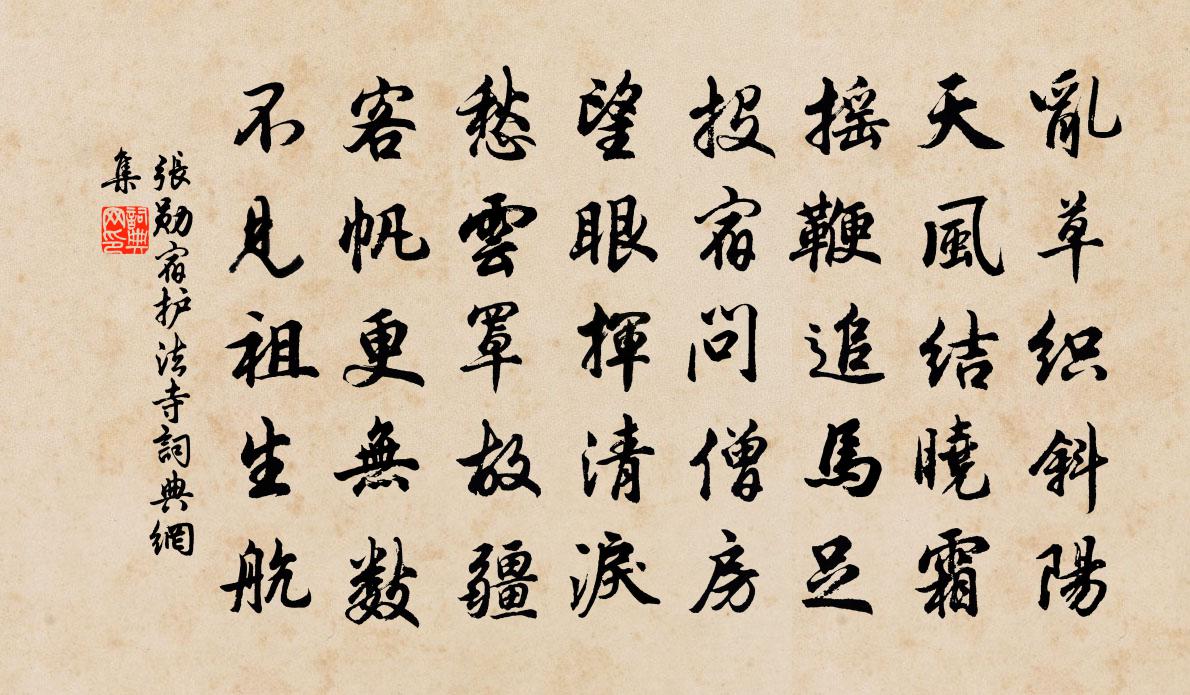 亂草织斜陽
天風结曉霜
摇鞭追馬足
投宿问僧房
望眼揮清淚
愁雲罩故疆
客帆更無數
不見祖生航
張勛宿护法寺詞典網
集
詞典
网印